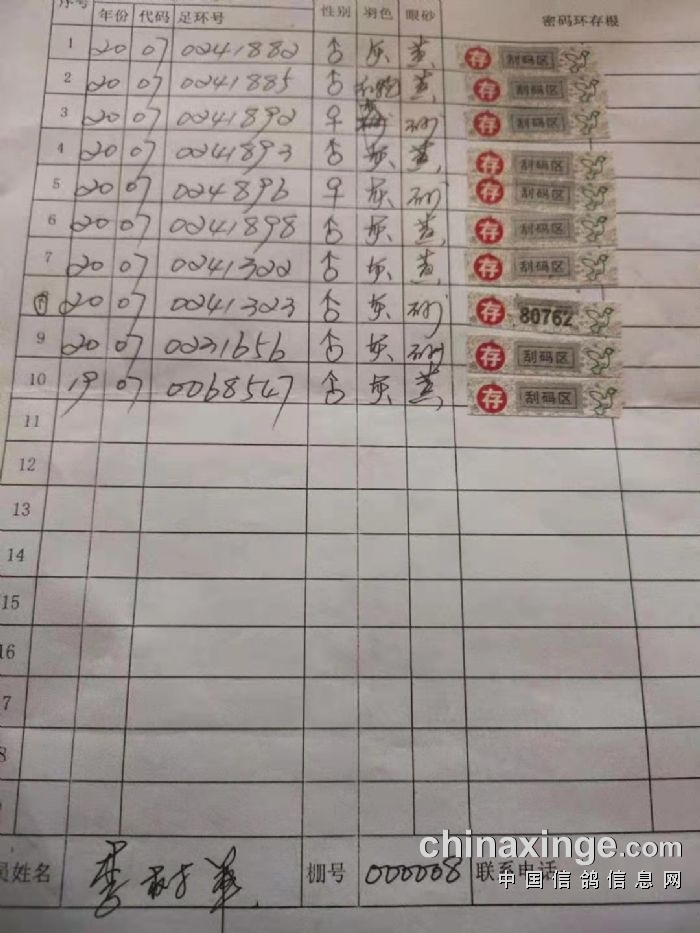 序号 年份 代码 足环号 性别 羽色 眼砂 密码环存根
1 20 07 0241882 ♂ 灰 黄 存 刮码区
2 20 07 0241885 ♂ 黄 存 刮码区
3 20 07 0241892 ♀ 砂 存 刮码区
4 20 07 0241893 ♂ 灰 黄 存 刮码区
5 20 07 024896 ♀ 灰 砂 存 刮码区
6 20 07 0241898 ♂ 灰 黄 存 刮码区
7 20 07 0241322 ♂ 灰 黄 存 刮码区
20 07 0241323 ♂ 灰 砂 存 80762
9 20 07 0231656 ♂ 灰 砂 存 刮码区
10 19 07 0068547 ♂ 灰 黄 存 刮码区
11
12
13
14
15
16
7
8
员姓名 李 棚号 000008 联系电话
chinaxinge.com
中国信鸽信息网